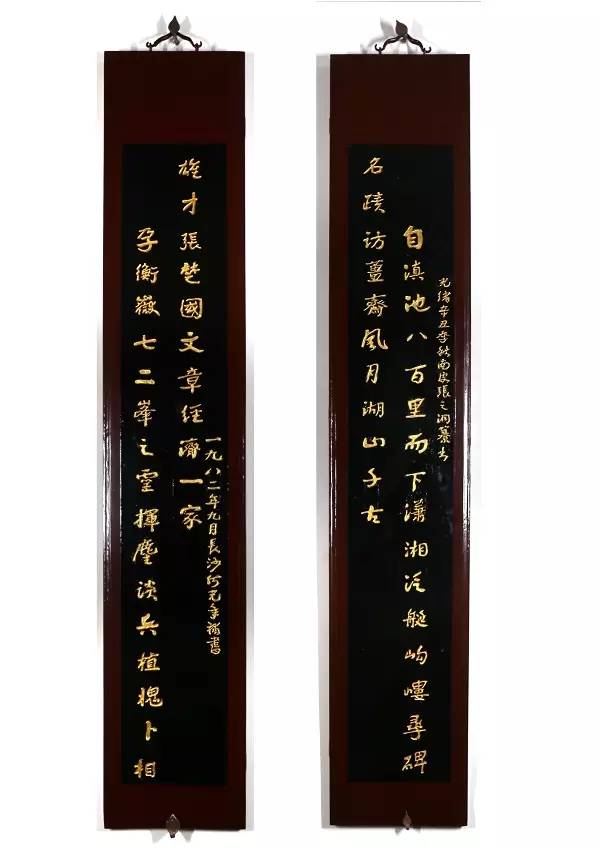 光绪辛丑季秋南皮張之洞纂书
自滇池八百里而下瀟湘泛艇岣嶁尋碑
名蹟访薑齋風月湖山千古
孕衡嶽七二峯之靈揮麈谈兵植槐卜相
雄才張楚國文章經濟一家
一九八二年九月長沙何光年補書